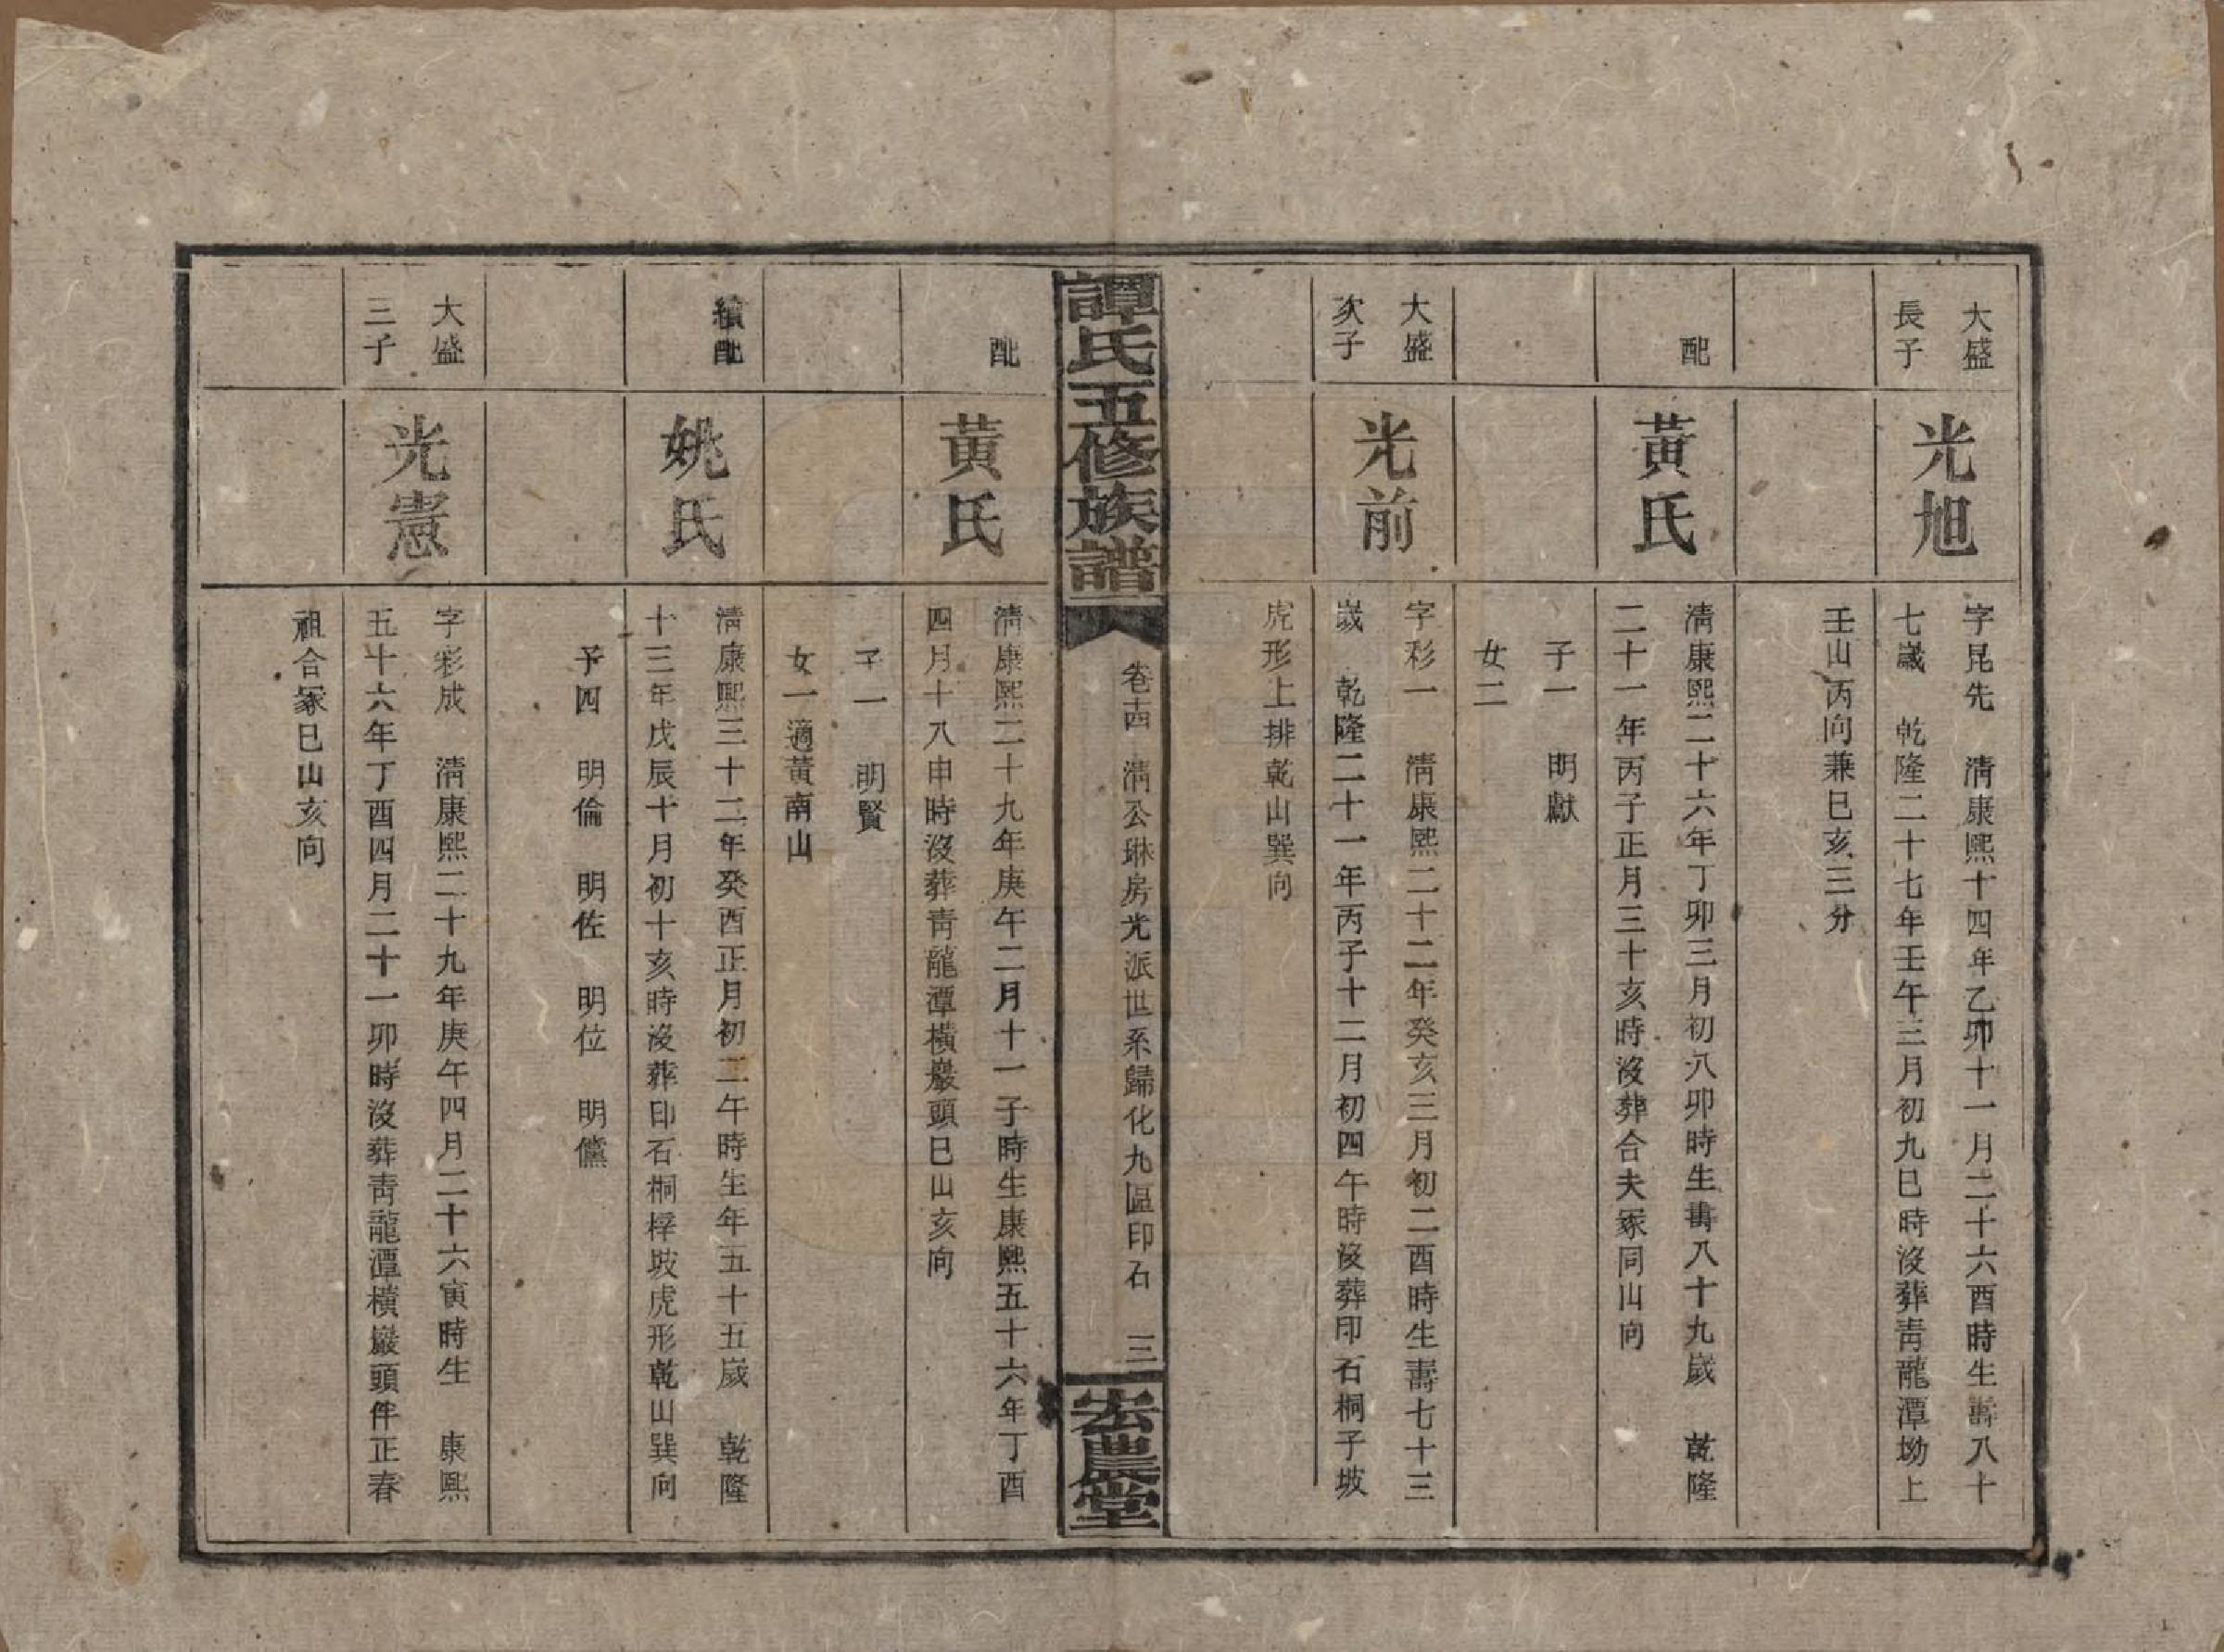 大盛
長子
光旭
字昆先　清康熙十四年乙卯十一月二十六酉時生壽八十
七歲　乾隆二十七年壬午三月初九巳時沒葬青龍潭坳上
壬山丙向兼巳亥三分
配
黃氏
清康熙二十六年丁卯三月初八卯時生壽八十九歲　乾隆
二十一年丙子正月三十亥時沒葬合夫冢同山向
子一　明獻
女二
大盛
次子
光前
字彩一　清康熙二十二年癸亥三月初二酉時生壽七十三
歲　乾隆二十一年丙子十二月初四午時沒葬印石桐子坡
虎形上排乾山巽向
譚氏五修族譜
卷十四　清公琳房光派世系歸化九區印石　三
宏農堂
配
黃氏
清康熙二十九年庚午二月十一子時生康熙五十六年丁酉
四月十八申時沒葬青龍潭橫巖頭巳山亥向
子一　明賢
女一適黃南山
續配
姚氏
清康熙三十二年癸酉正月初二午時生年五十五歲　乾隆
十三年戊辰十月初十亥時沒葬印石桐梓坡虎形乾山巽向
子四　明倫　明佐　明位　明儻
大盛
三子
光憲
字彩成　清康熙二十九年庚午四月二十六寅時生　康熙
五十六年丁酉四月二十一卯時沒葬青龍潭橫巖頭伴正春
祖合冢巳山亥向